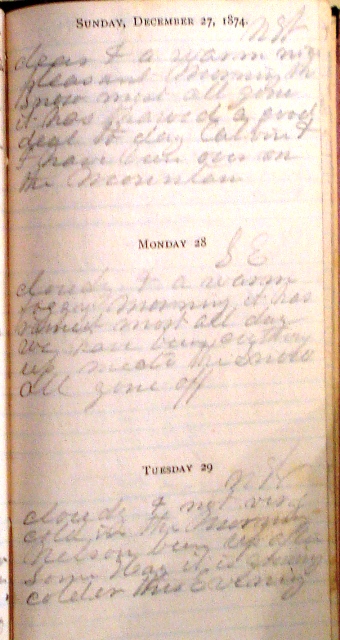 SUNDAY, DECEMBER 27, 1874.
clear & a warm
pleasant morning the
snow most all gone
it has thawed a good
deal to day Calvin &
I have been over on
the mountain
MONDAY 28
S E
cloudy & a warm
foggy morning it has
rained most all day
we have been cutting
up meat the snow
all gone off
TUESDAY 29
cloudy & not very
cold in the morning
Nelson been up after
some hay it is
colder this evening